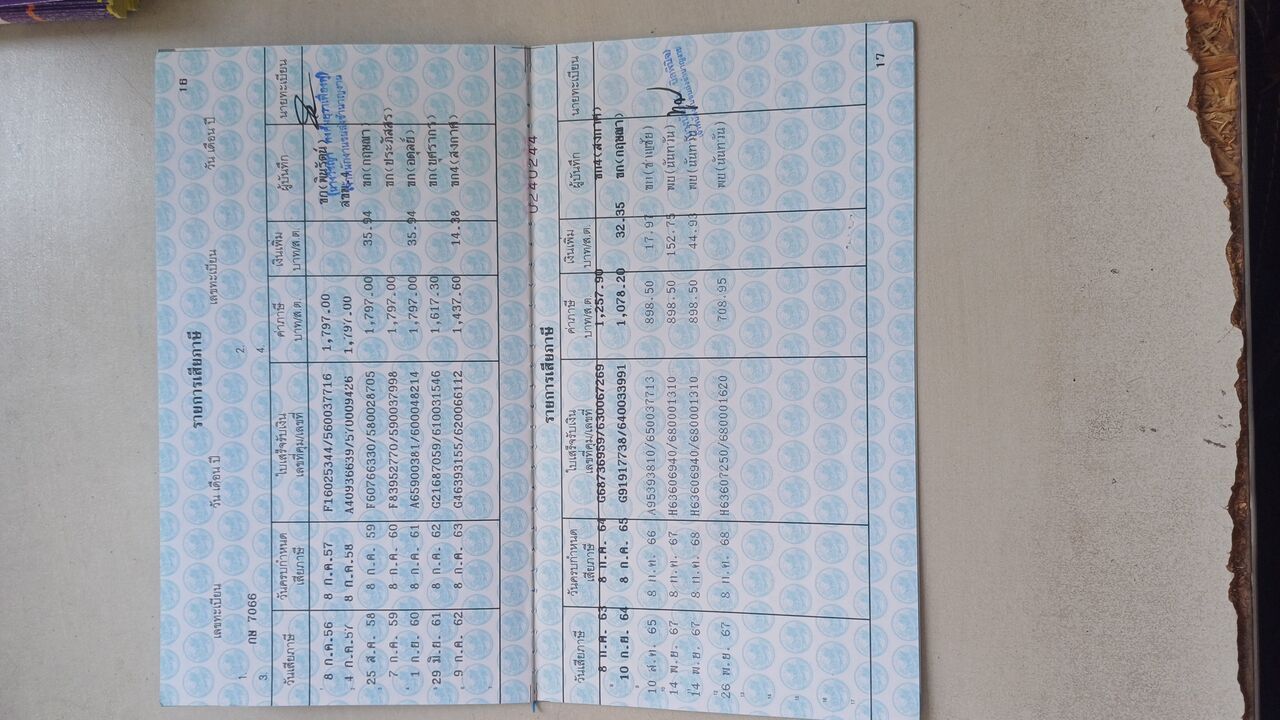 16
รายการเสียภาษี
เลขทะเบียน วัน เดือน ปี เลขทะเบียน วัน เดือน ปี
1. กษ 7066 2.
3. 4.
วันเสียภาษี วันครบกำหนดเสียภาษี ใบเสร็จรับเงิน เลขที่คุม/เลขที่ ค่าภาษี บาท/ส.ต. เงินเพิ่ม บาท/ส.ต. ผู้บันทึก นายทะเบียน
8 ก.ค.56 8 ก.ค.57 F16025344/560037716 1,797.00 ขก(พิมรัตน์)
4 ก.ค.57 8 ก.ค.58 A40936639/570009426 1,797.00
25 ส.ค. 58 8 ก.ค. 59 F60766330/580028705 1,797.00 35.94 ขก(กฤษฌา)
7 ก.ค. 59 8 ก.ค. 60 F83952770/590037998 1,797.00 ขก(ประภัสสร)
1 ก.ย. 60 8 ก.ค. 61 A65900381/600048214 1,797.00 35.94 ขก(อดุลย์)
29 มิ.ย. 61 8 ก.ค. 62 G21687059/610031546 1,617.30 ขก(บุศรากร)
9 ก.ค. 62 8 ก.ค. 63 G46393155/620066112 1,437.60 14.38 ขก4(สงกาศ)
0240244
รายการเสียภาษี
วันเสียภาษี วันครบกำหนดเสียภาษี ใบเสร็จรับเงิน เลขที่คุม/เลขที่ ค่าภาษี บาท/ส.ต. เงินเพิ่ม บาท/ส.ต. ผู้บันทึก นายทะเบียน
8 ก.ค. 63 8 ก.ค. 64 G68736959/630067269 1,257.90 ขก4(สงกาศ)
10 ก.ย. 64 8 ก.ค. 65 G91917738/640033991 1,078.20 32.35 ขก(กฤษฌา)
10 ส.ค. 65 8 ก.ค. 66 A95393810/650037713 898.50 17.97 ขก(ชาญชัย)
14 พ.ย. 67 8 ก.ค. 67 H63606940/680001310 898.50 152.75 พย(นันทวัน)
14 พ.ย. 67 8 ก.ค. 68 H63606940/680001310 898.50 44.93 พย(นันทวัน)
26 พ.ย. 67 8 ก.ค. 68 H63607250/680001620 708.95 พย(นันทวัน)
17